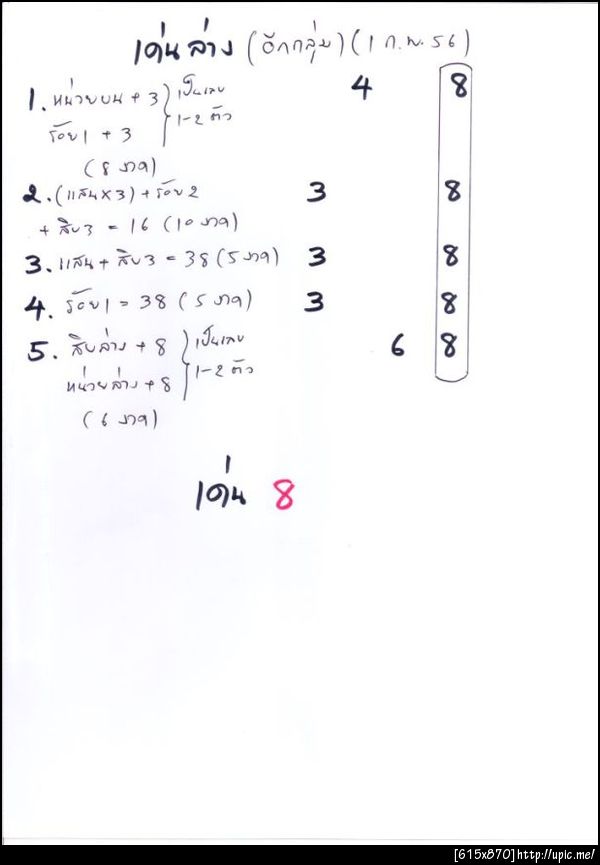 เด่นล่าง (อีกกลุ่ม) (1 ก.พ. 56)
1. หน่วยบน + 3 } เป็นเลข 4 8
ร้อย1 + 3 } 1-2 ตัว
(8 งวด)
2. (แสนx3) + ร้อย2 3 8
+ สิบ3 = 16 (10 งวด)
3. แสน + สิบ3 = 38 (5 งวด) 3 8
4. ร้อย1 = 38 (5 งวด) 3 8
5. สิบล่าง + 8 } เป็นเลข 6 8
หน่วยล่าง + 8 } 1-2 ตัว
(6 งวด)
เด่น 8
[615x870]http://upic.me/